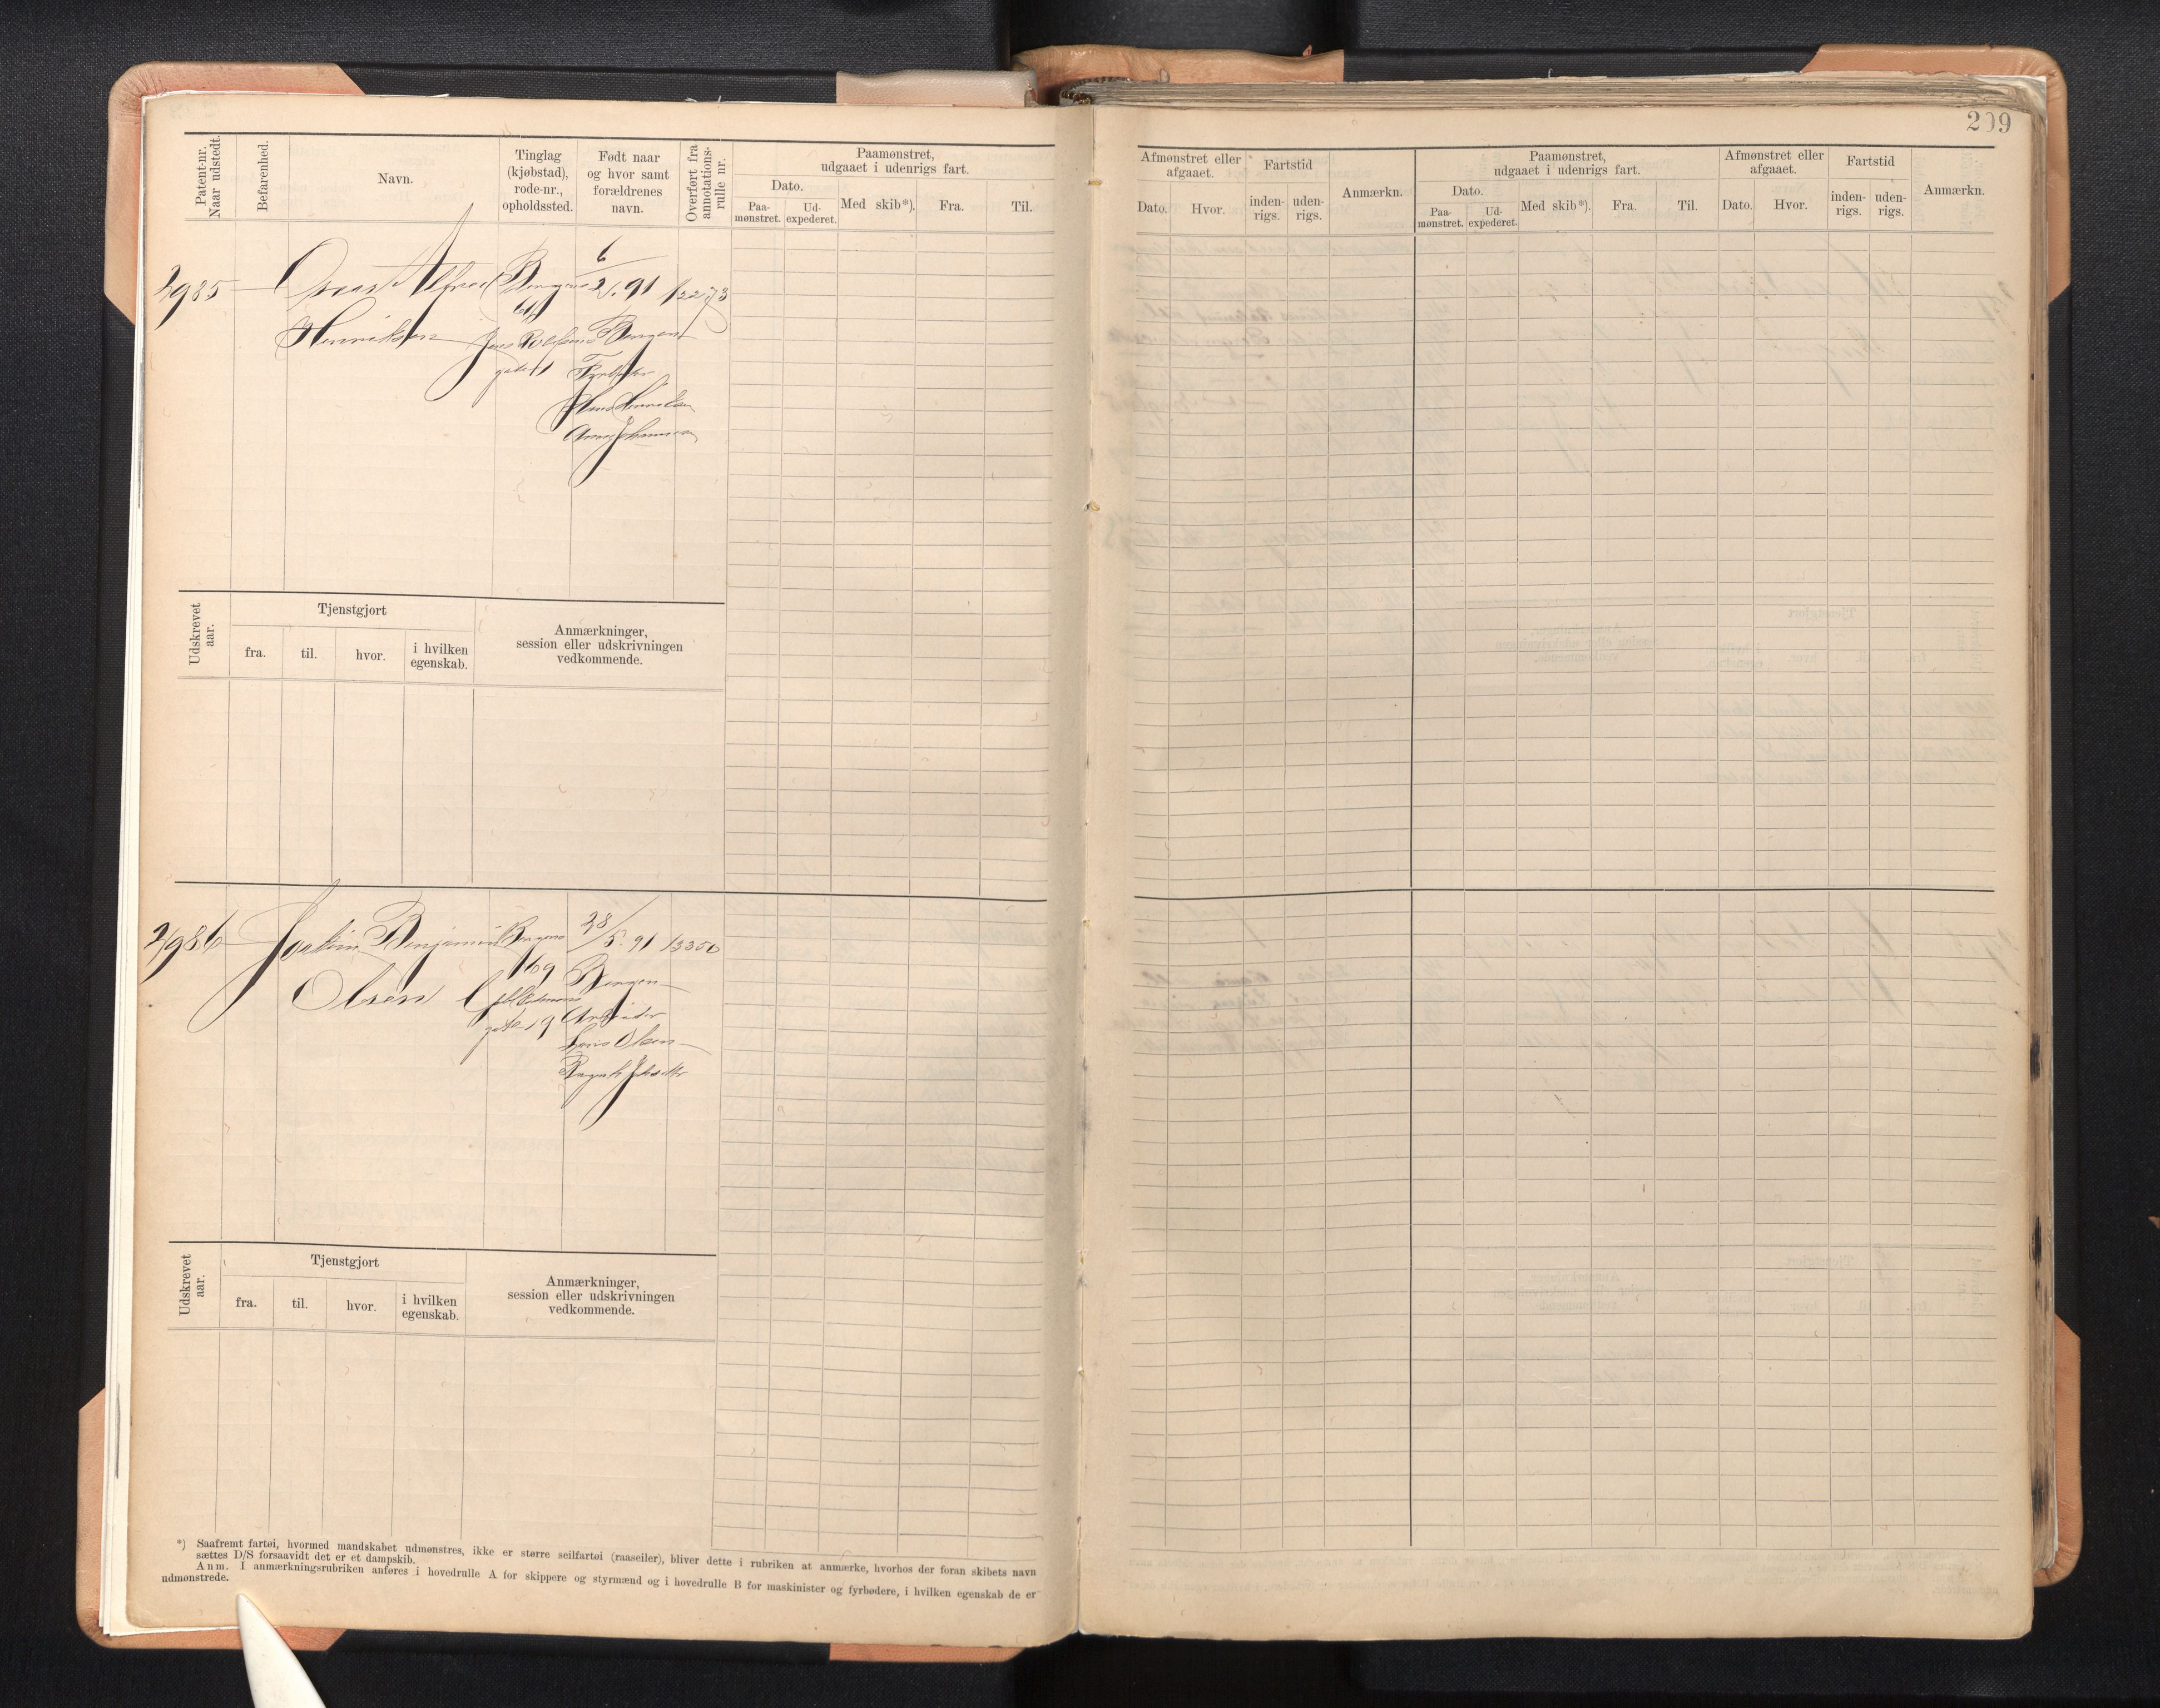 209
Patent-nr. Naar udstedt.
Befarenhed.
Navn.
Tinglag (kjøbstad), rode-nr., opholdssted.
Født naar og hvor samt forældrenes navn.
Overført fra annotations-rulle nr.
Paamønstret, udgaaet i udenrigs fart.
Dato.
Paa-mønstret.
Ud-expederet.
Med skib*).
Fra.
Til.
Afmønstret eller afgaaet.
Dato.
Hvor.
Fartstid
inden-rigs.
uden-rigs.
Anmærkn.
Paamønstret, udgaaet i udenrigs fart.
Dato.
Paa-mønstret.
Ud-expederet.
Med skib*).
Fra.
Til.
Afmønstret eller afgaaet.
Dato.
Hvor.
Fartstid
inden-rigs.
uden-rigs.
Anmærkn.
2985 Alfred Bergen 6/2. 91
Henriksen Bergen
Henriksen
Udskrevet aar.
Tjenstgjort
fra.
til.
hvor.
i hvilken egenskab.
Anmærkninger, session eller udskrivningen vedkommende.
2986 Joakim Benjamin Bergen 28/5. 91 13350
Olsen 169 Bergen
gate 19 Arbeider
Olsen
Udskrevet aar.
Tjenstgjort
fra.
til.
hvor.
i hvilken egenskab.
Anmærkninger, session eller udskrivningen vedkommende.
*) Saafremt fartøi, hvormed mandskabet udmønstres, ikke er større seilfartøi (raaseiler), bliver dette i rubriken at anmærke, hvorhos der foran skibets navn
sættes D/S forsaavidt det er et dampskib.
Anm. I anmærkningsrubriken anføres i hovedrulle A for skippere og styrmænd og i hovedrulle B for maskinister og fyrbødere, i hvilken egenskab de er
udmønstrede.